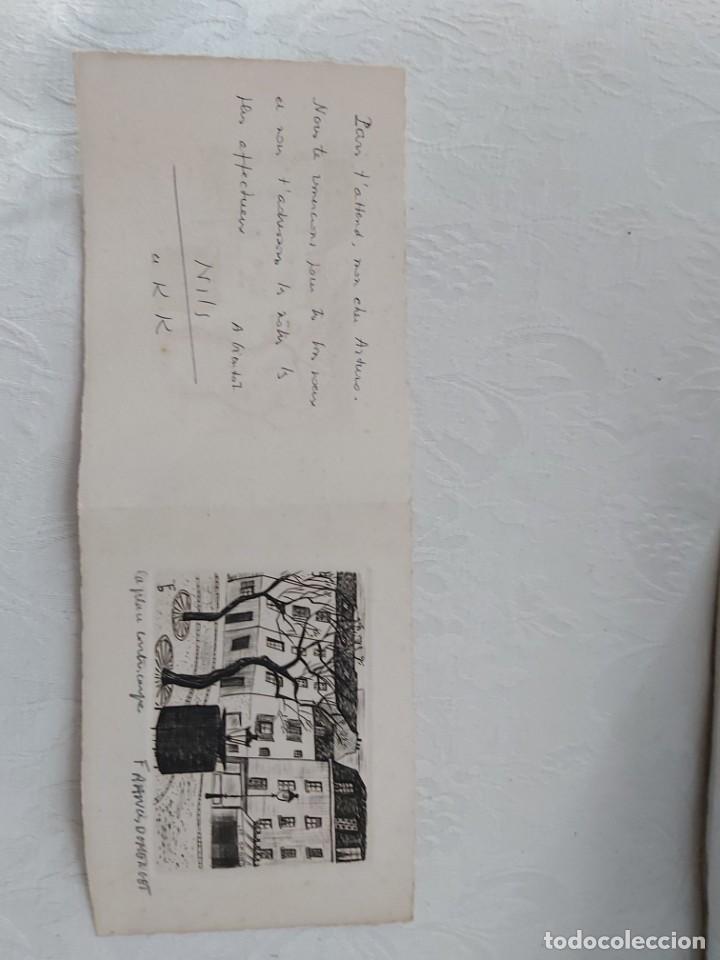 Paris t'attend, mon cher Arturo.
Nous te remercions pour tes bons voeux
et nous t'adressons les nôtres les
plus affectueux A bientôt.
Nils
et KK
la place contrescarpe
FRANCIS DOMERGUE
todocoleccion